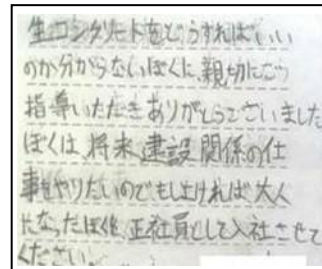 生コンクリートをどうすればいい
のか分からないぼくに、親切にご
指導いただきありがとうございました
ぼくは、将来、建設関係の仕
事をやりたいのでもしよければ大人
になったぼくを、正社員として入社させて
ください。